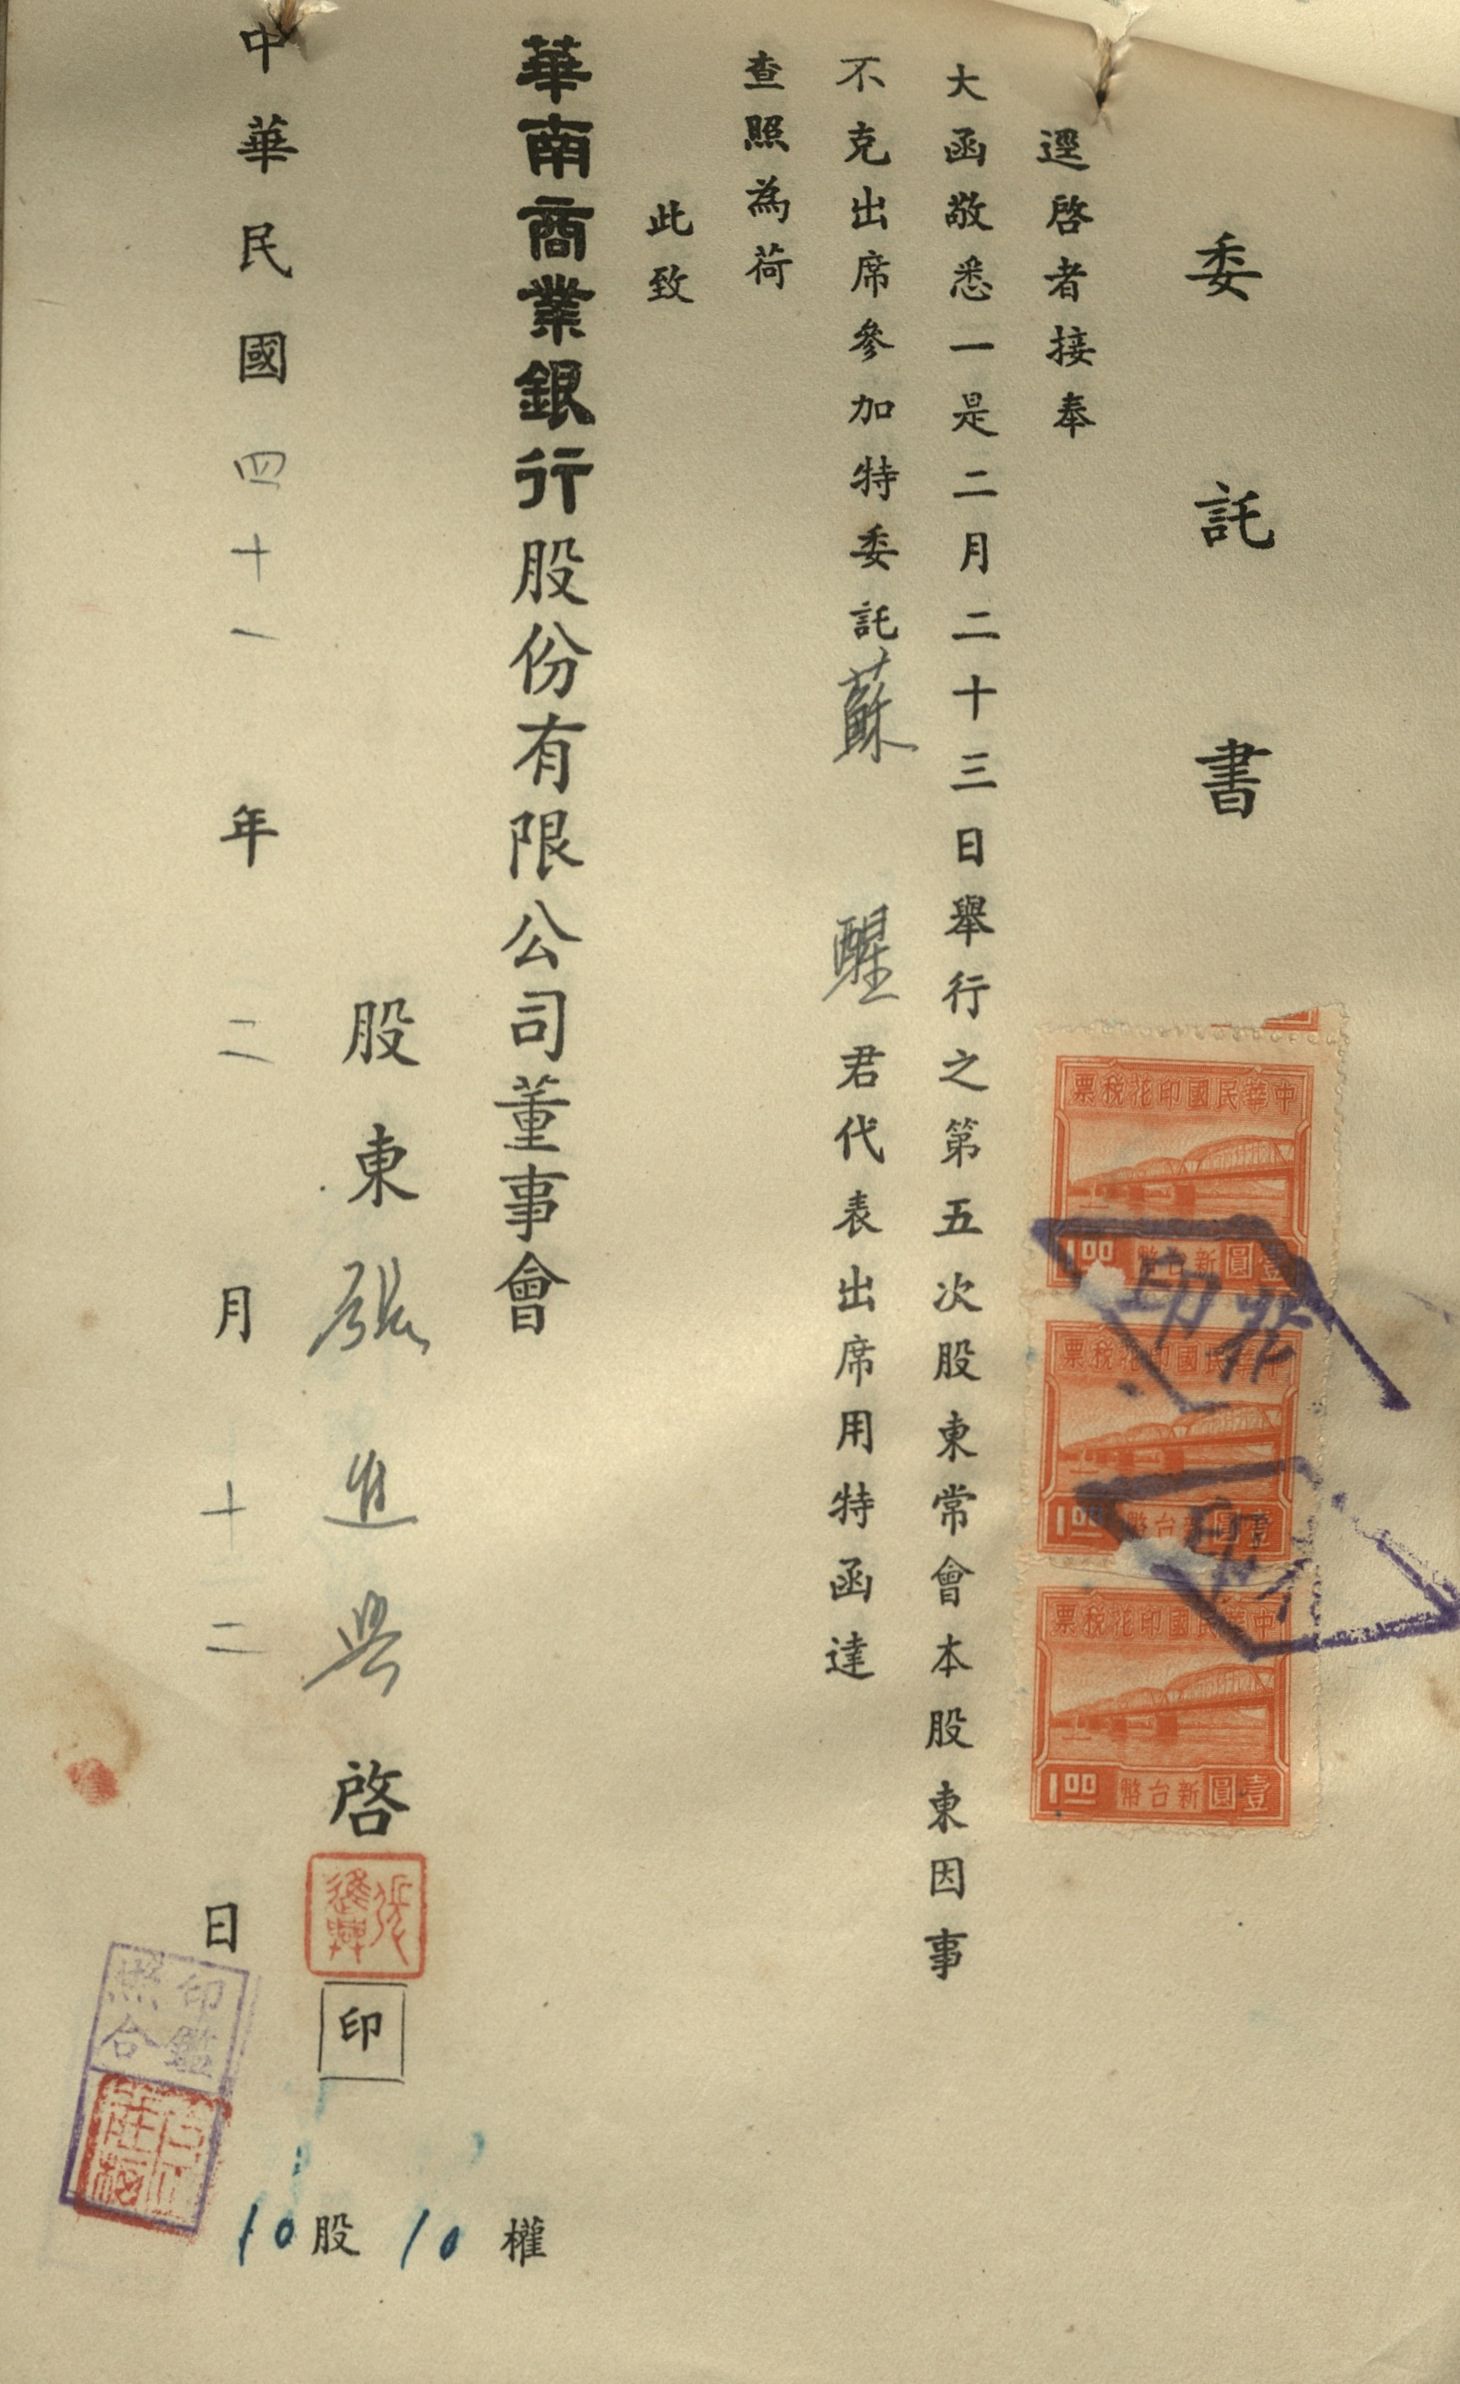 委託書
逕啓者接奉
大函敬悉一是二月二十三日舉行之第五次股東常會本股東因事
不克出席參加特委託蘇醒君代表出席用特函達
查照為荷
此致
華南商業銀行股份有限公司董事會
股東張進興啓
印
中華民國四十一年二月十二日
10股10權
中華民國印花稅票
1.00 新台幣壹圓
中華民國印花稅票
1.00 新台幣壹圓
中華民國印花稅票
1.00 新台幣壹圓
張進興
印鑑
照合